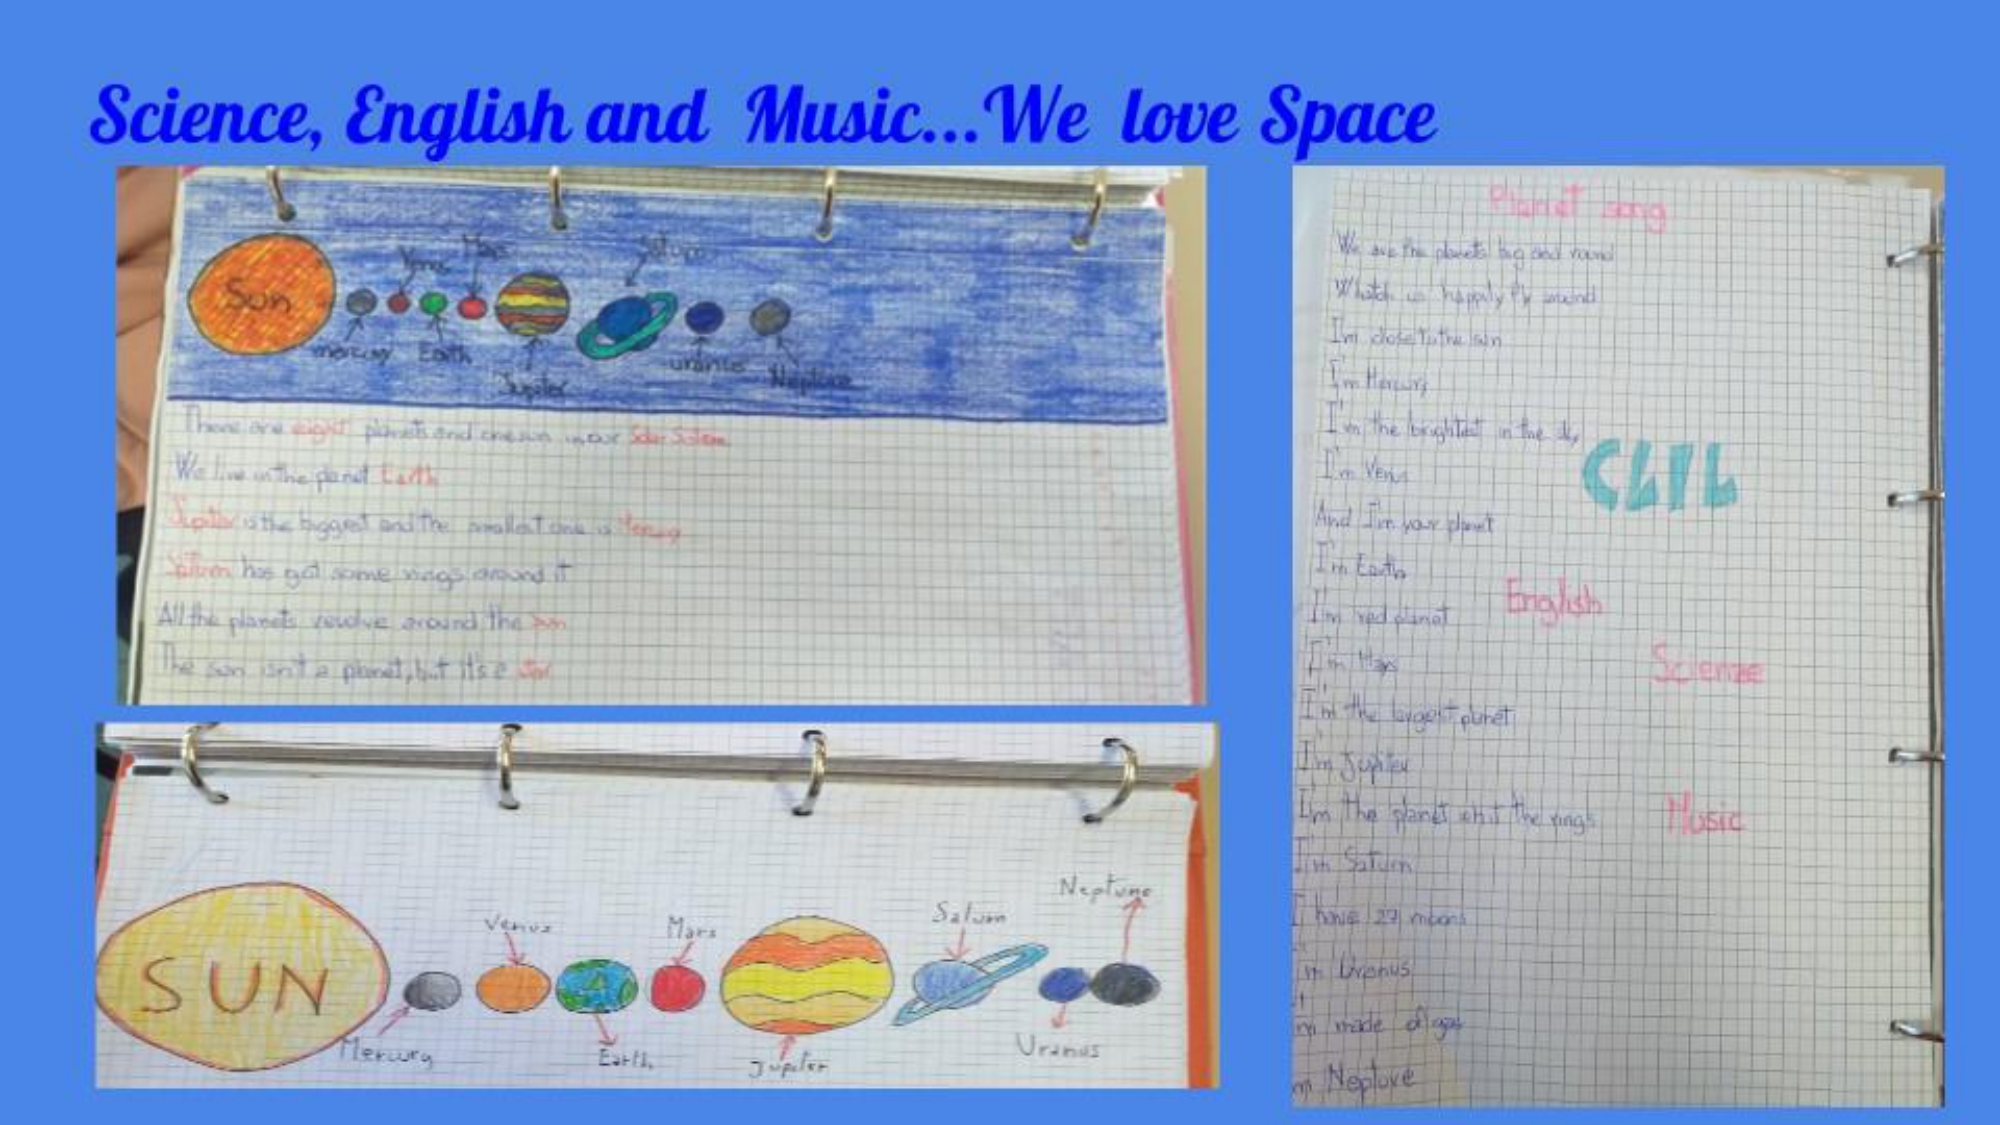 Science, English and Music...We love Space
Sun
Venus
Mars
Saturn
mercury
Earth
Jupiter
uranus
Neptune
There are eight planets and one sun in our Solar System
We live in the planet Earth
Jupiter is the biggest and the smallest one is Mercury
Saturn has got some rings around it
All the planets revolve around the sun
The sun isn't a planet, but it's a star
SUN
Mercury
Venus
Earth
Mars
Jupiter
Saturn
Uranus
Neptune
Planet song
We are the planets big and round
Whatch us happily fly around
I'm close to the sun
I'm Mercury
I'm the brightest in the sky
I'm Venus
And I'm your planet
I'm Earth
I'm red planet
I'm Mars
I'm the largest planet
I'm Jupiter
I'm the planet whit the rings
I'm Saturn
I have 27 moons
I'm Uranus
I'm made of gas
m Neptune
CLIL
English
Science
Music